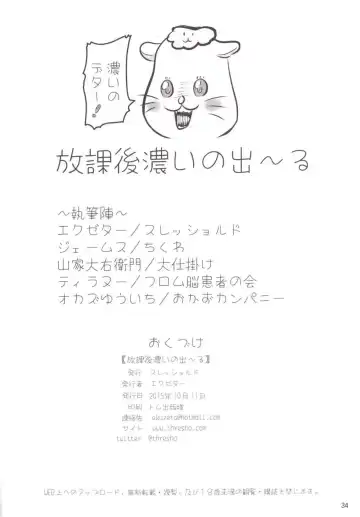 濃いの
デター!!
放課後濃いの出〜る
〜執筆陣〜
エクゼター/スレッショルド
ジェームス/ちくわ
山家大右衛門/大仕掛け
ティラヌー/フロム脳患者の会
オカズゆういち/おかおカンパニー
おくづけ
【放課後濃いの出〜る】
発行 スレッショルド
発行者 エクゼター
発行日 2015年10月11日
印刷 トム出版
連絡先
サイト
twitter @thresho
34